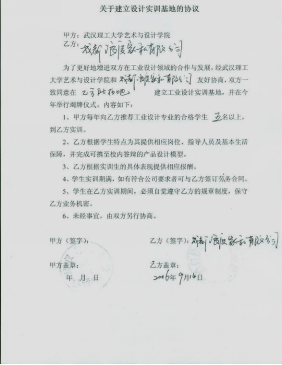 关于建立设计实训基地的协议
甲方：武汉理工大学艺术与设计学院
乙方：成都 家私有限公司
为了更好地增进双方在工业设计领域的合作与发展，经武汉理工
大学艺术与设计学院和 成都 家私有限公司 友好协商，双方一
致同意在 乙方所在地 建立工业设计实训基地，并在今
年举行揭牌仪式，内容如下：
1、甲方每年向乙方推荐工业设计专业的合格学生 五名以上，
到乙方实训。
2、乙方根据学生特点为其提供相应岗位，指导人员及基本生活
保障，并完成可携至校内答辩的产品设计模型。
3、乙方根据实训生的具体表现提供相应报酬。
4、学生实训期满，如有符合公司要求者可与乙方签订劳务合同。
5、学生在乙方实训期间，必须自觉遵守乙方的规章制度，保守
乙方业务机密。
6、未经事宜，由双方另行协商。
甲方（签字）： 乙方（签字）：成都 家私有限公司
甲方盖章： 乙方盖章：
年 月 日 2006年9月16日